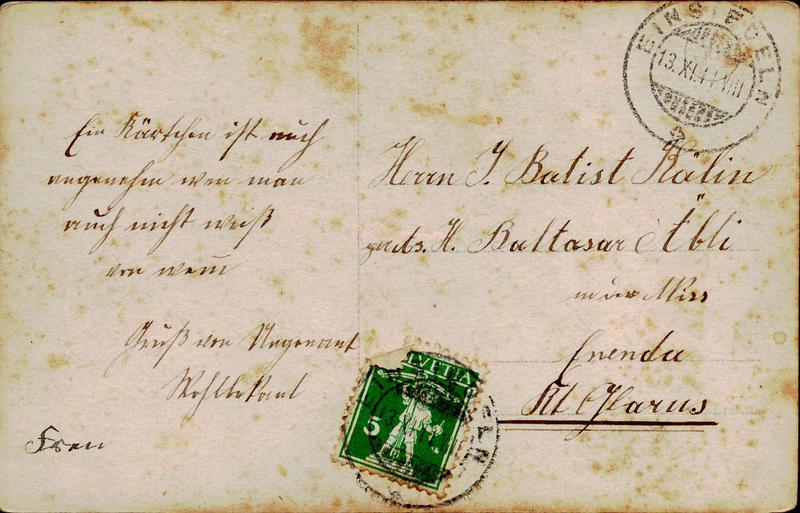 EINSIEDELN
13.XI.11-VIII
Ein Kärtchen ist auch
angenehm wen man
auch nicht weiß
von wem
Gruß von Ungenant
Wohlbekant
Herrn J. Batist Kälin
H. Baltasar Äbli
in der
Enenda
Kt. Glarus
HELVETIA
5